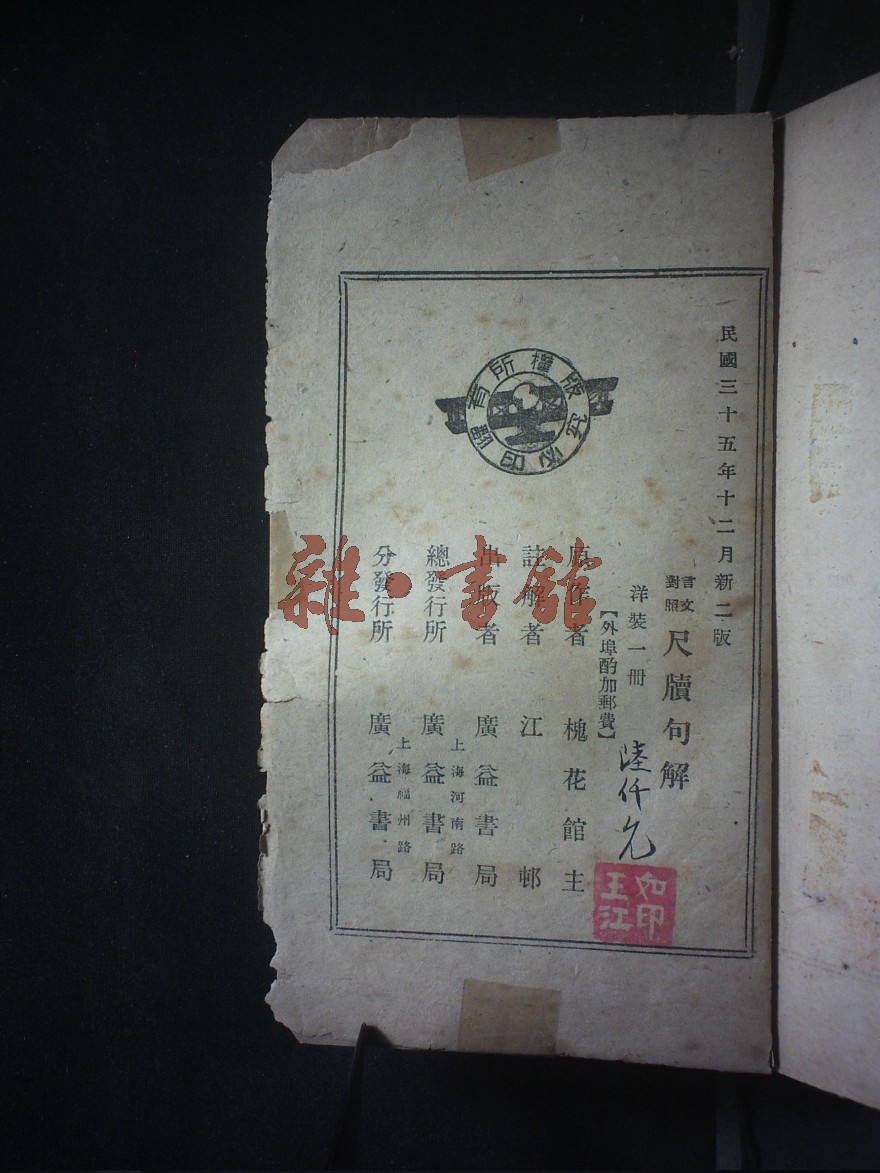 民國三十五年十二月新二版
言文
對照
尺牘句解
洋裝一冊
陸仟元
【外埠酌加郵費】
原作者 槐花館主
註解者 江邨
出版者 廣益書局
上海河南路
總發行所 廣益書局
上海福州路
分發行所 廣益書局
版權所有
翻印必究
如印
王江
雜·書館